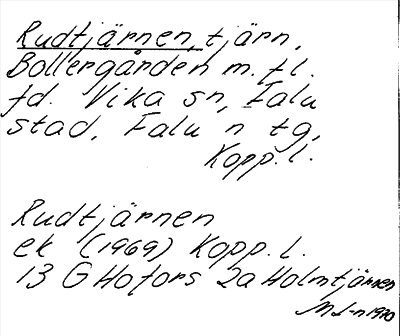 Rudtjärnen, tjärn,
Bollergården m. fl.
fd. Vika sn, Falu
stad, Falu n tg,
Kopp. l.
Rudtjärnen
ek (1969) Kopp. l.
13 G Hofors 2a Holmtjärnen
1970